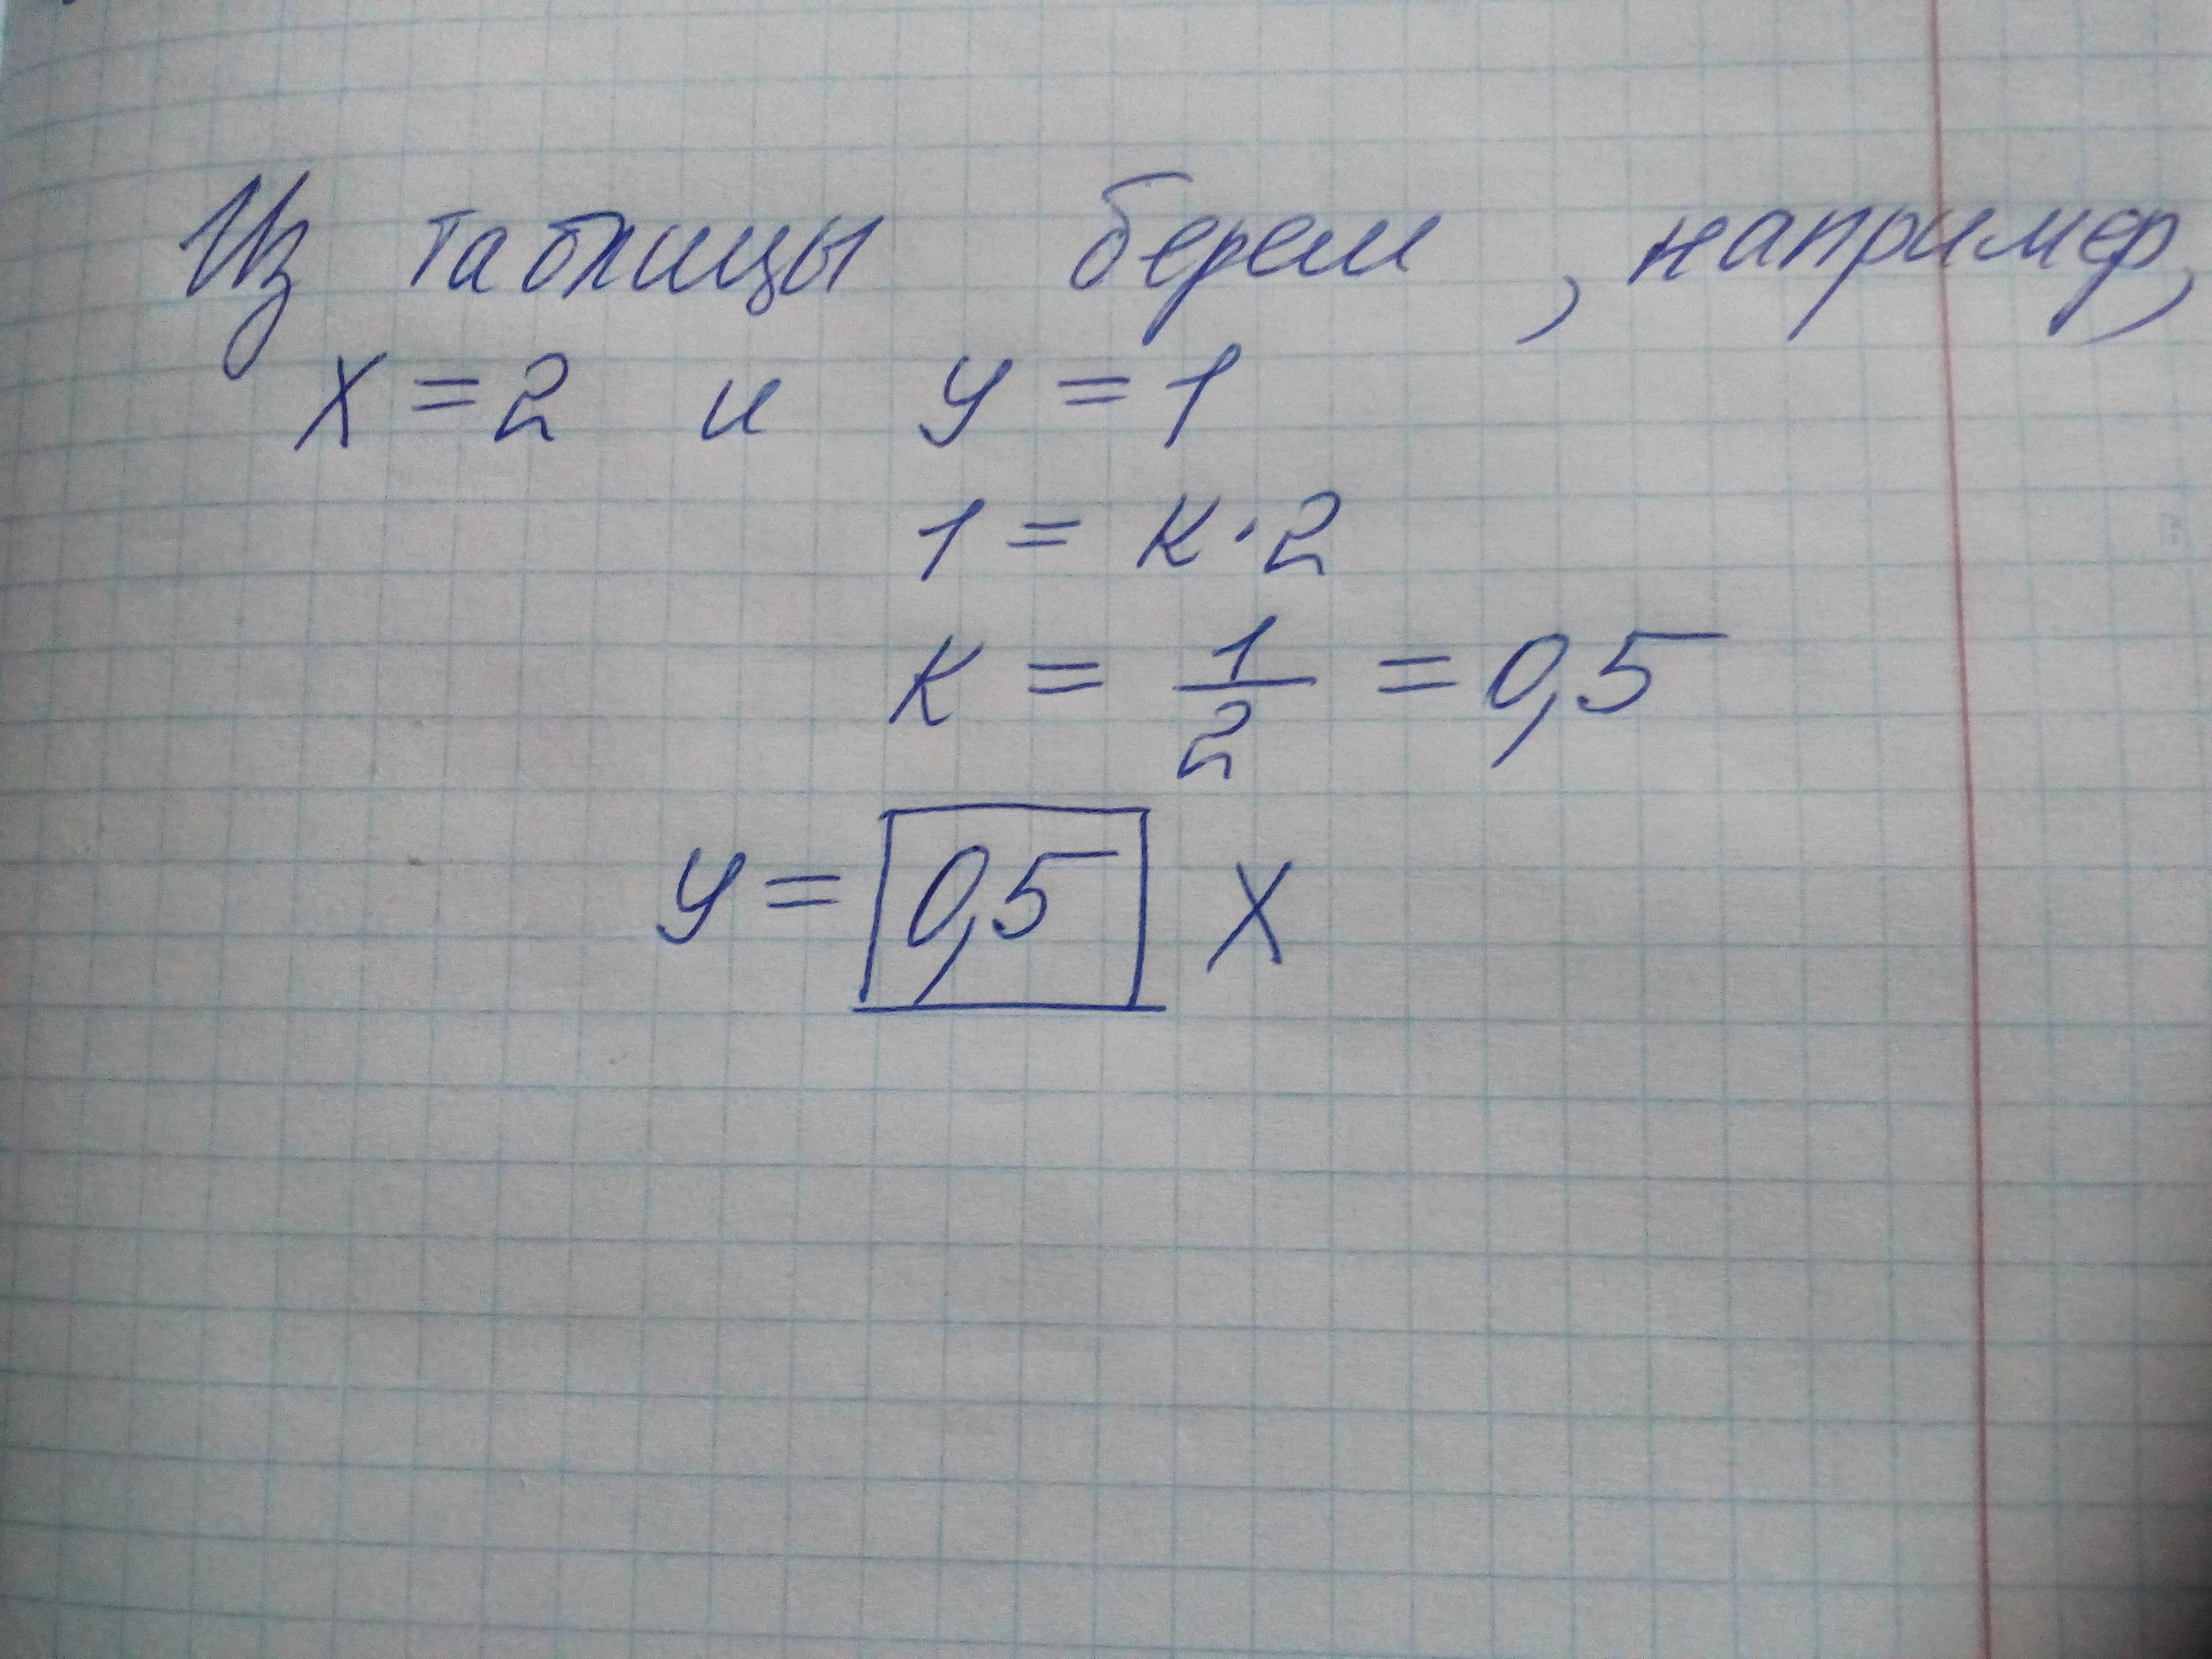 Из таблицы берем, например,
x = 2 и y = 1
1 = к · 2
к = 1/2 = 0,5
y = 0,5 x